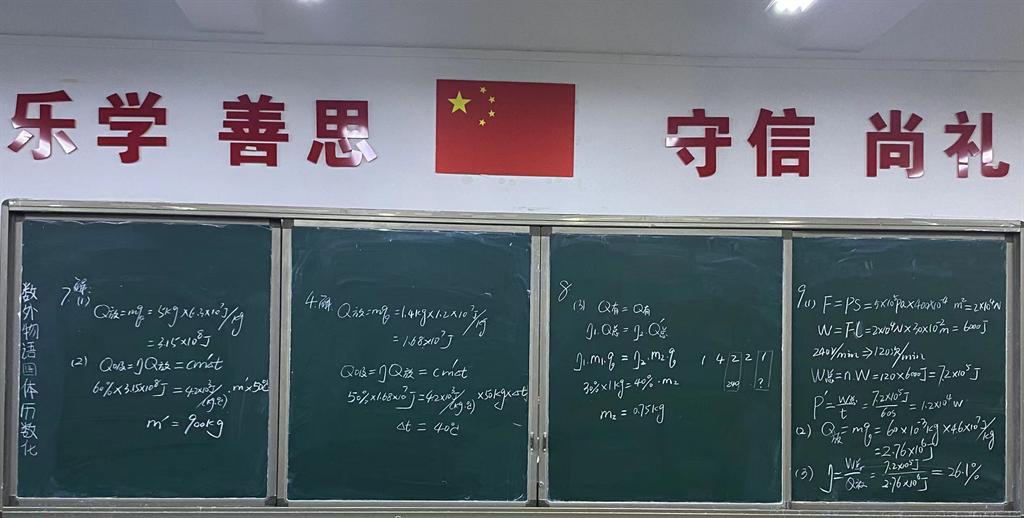 乐学 善思 守信 尚礼
数外物语 体历数化
7.解:
(1) Q放=mq=5kg×6.3×10⁷J/kg
=3.15×10⁸J
(2) Q吸=ηQ放=cm'Δt
60%×3.15×10⁸J=4.2×10³J/(kg·℃)·m'×50℃
m'=900kg
4.解.
Q放=mq=1.4kg×1.2×10⁷J/kg
=1.68×10⁷J
Q吸=ηQ放=cm'Δt
50%×1.68×10⁷J=4.2×10³J/(kg·℃)×50kg×Δt
Δt=40℃
8
(3) Q有=Q有
η₁.Q总=η₂.Q'总
η₁.m₁.q=η₂.m₂q
30%×1kg=40%.m₂
m₂=0.75kg
1 4 2 2 1
?
9.(1) F=PS=5×10⁵Pa×400×10⁻⁴m²=2×10⁴N
W=F·L=2×10⁴N×30×10⁻²m=6000J
240r/min⇒120次/min
W总=n.W=120×6000J=7.2×10⁵J
P'=W总/t=7.2×10⁵J/60s=1.2×10⁴W
(2) Q放=mq=60×10⁻³kg×4.6×10⁷J/kg
=2.76×10⁶J
(3) η=W总/Q放=7.2×10⁵J/2.76×10⁶J=26.1%